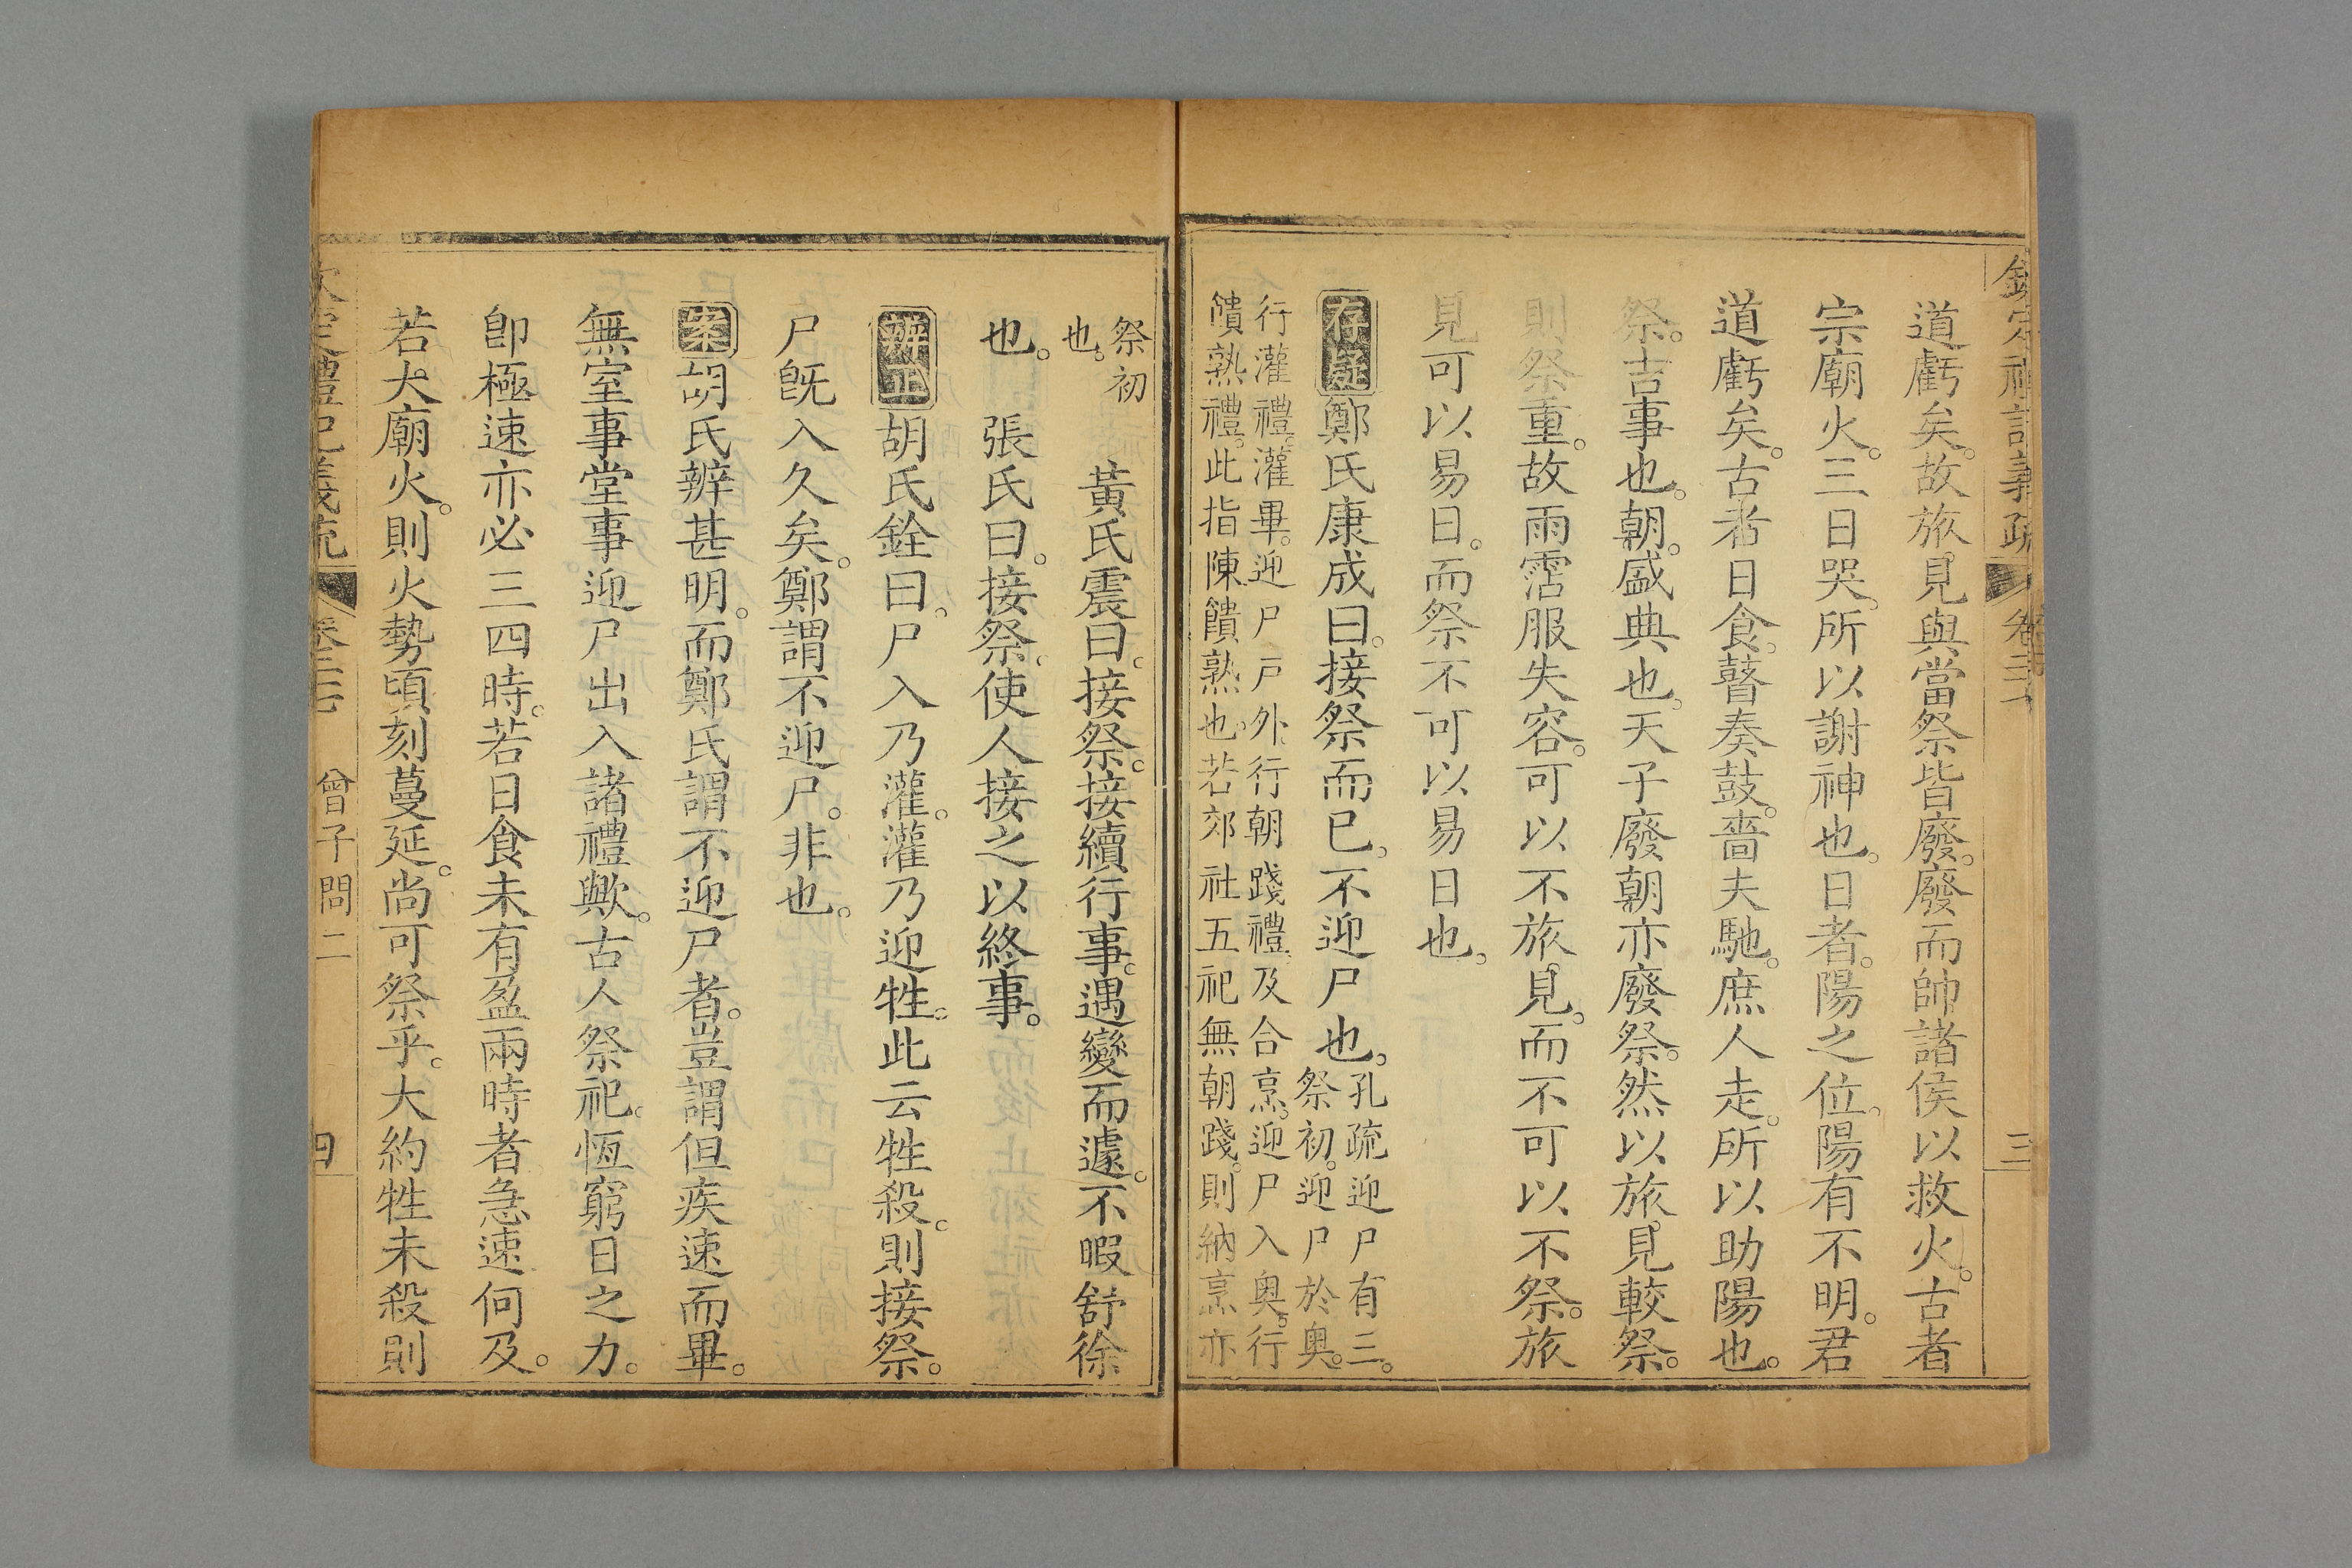 欽定禮記義疏 卷二十七 三
道虧矣。故旅見與當祭皆廢。廢而帥諸侯以救火。古者
宗廟火。三日哭。所以謝神也。日者。陽之位。陽有不明。君
道虧矣。古者日食。瞽奏鼓。嗇夫馳。庶人走。所以助陽也。
祭。吉事也。朝。盛典也。天子廢朝亦廢祭。然以旅見較祭。
則祭重。故雨霑服失容。可以不旅見。而不可以不祭。旅
見可以易日。而祭不可以易日也。
存疑鄭氏康成曰。接祭而已。不迎尸也。孔疏迎尸有三。
祭初。迎尸於奧。
行灌禮。灌畢。迎尸戶外。行朝踐禮。及合烹。迎尸入奧。行
饋熟禮。此指陳饋熟也。若郊社五祀無朝踐。則納烹亦
祭初
也。
黃氏震曰。接祭。接續行事。遇變而遽。不暇舒徐
也。 張氏曰。接祭。使人接之以終事。
辨正胡氏銓曰。尸入乃灌。灌乃迎牲。此云牲殺。則接祭。
尸旣入久矣。鄭謂不迎尸。非也。
案胡氏辨甚明。而鄭氏謂不迎尸者。豈謂但疾速而畢。
無室事堂事迎尸出入諸禮歟。古人祭祀。恆窮日之力。
卽極速亦必三四時。若日食未有盈兩時者急速何及。
若大廟火。則火勢頃刻蔓延。尚可祭乎。大約牲未殺則
欽定禮記義疏 卷二十七 曾子問二 四